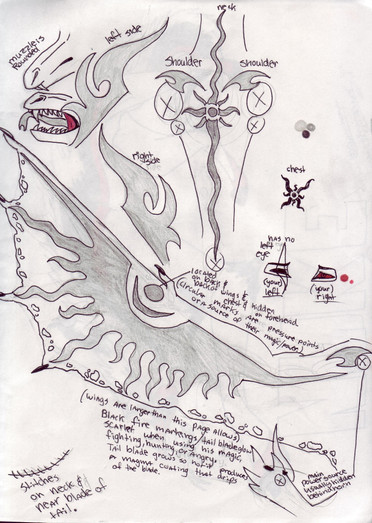 neck
muzzle is
Rounded
left side
shoulder
shoulder
right
side
chest
has no
left
eye
(your)
left
(your)
right
located
on back &
back of wings &
chest & hidden
on forehead.
(Circular marks are pressure points
or a source of their magic/power.)
(wings are larger than this page allows)
Black fire markings/tail blade glow
scarlet when using his magic,
fighting, hunting, or angry.
Tail blade grows so hot it
produces
a magma coating that drips
of the blade.
stitches
on neck &
near blade of
tail.
main
power source
usually hidden
behind horn